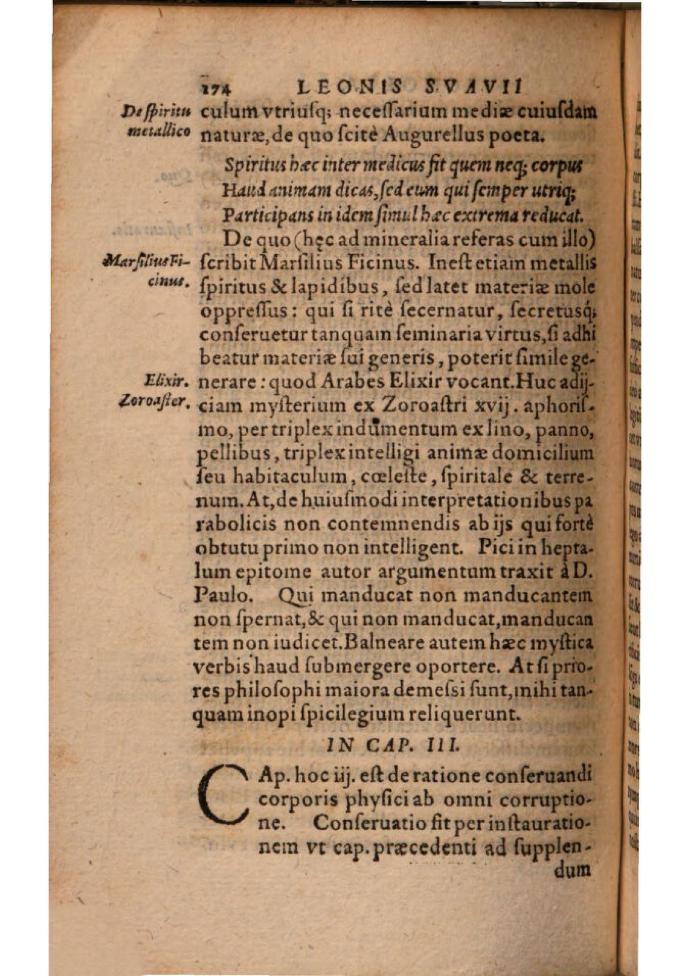 174 LEONIS SVAVII
De spiritu
metallico
culum vtriusq; necessarium mediæ cuiusdam
naturæ, de quo scitè Augurellus poeta.
Spiritus hæc inter medicus fit quem neq; corpus
Haud animam dicas, sed eum qui semper utriq;
Participans in idem simul hæc extrema reducat.
De quo (hęc ad mineralia referas cum illo)
Marsilius Fi-
cinus.
scribit Marsilius Ficinus. Inest etiam metallis
spiritus & lapidibus, sed latet materiæ mole
oppressus: qui si ritè secernatur, secretusq;
conseruetur tanquam seminaria virtus, si adhi
beatur materiæ sui generis, poterit simile ge-
Elixir.
nerare: quod Arabes Elixir vocant. Huc adij-
Zoroaster.
ciam mysterium ex Zoroastri xvij. aphoris-
mo, per triplex indumentum ex lino, panno,
pellibus, triplex intelligi animæ domicilium
seu habitaculum, cœleste, spiritale & terre-
num. At, de huiusmodi interpretationibus pa
rabolicis non contemnendis ab ijs qui fortè
obtutu primo non intelligent. Pici in hepta-
lum epitome autor argumentum traxit à D.
Paulo. Qui manducat non manducantem
non spernat, & qui non manducat, manducan
tem non iudicet. Balneare autem hæc mystica
verbis haud submergere oportere. At si prio-
res philosophi maiora demessi sunt, mihi tan-
quam inopi spicilegium reliquerunt.
IN CAP. III.
CAp. hoc iij. est de ratione conseruandi
corporis physici ab omni corruptio-
ne. Conseruatio fit per instauratio-
nem vt cap. præcedenti ad supplen-
dum